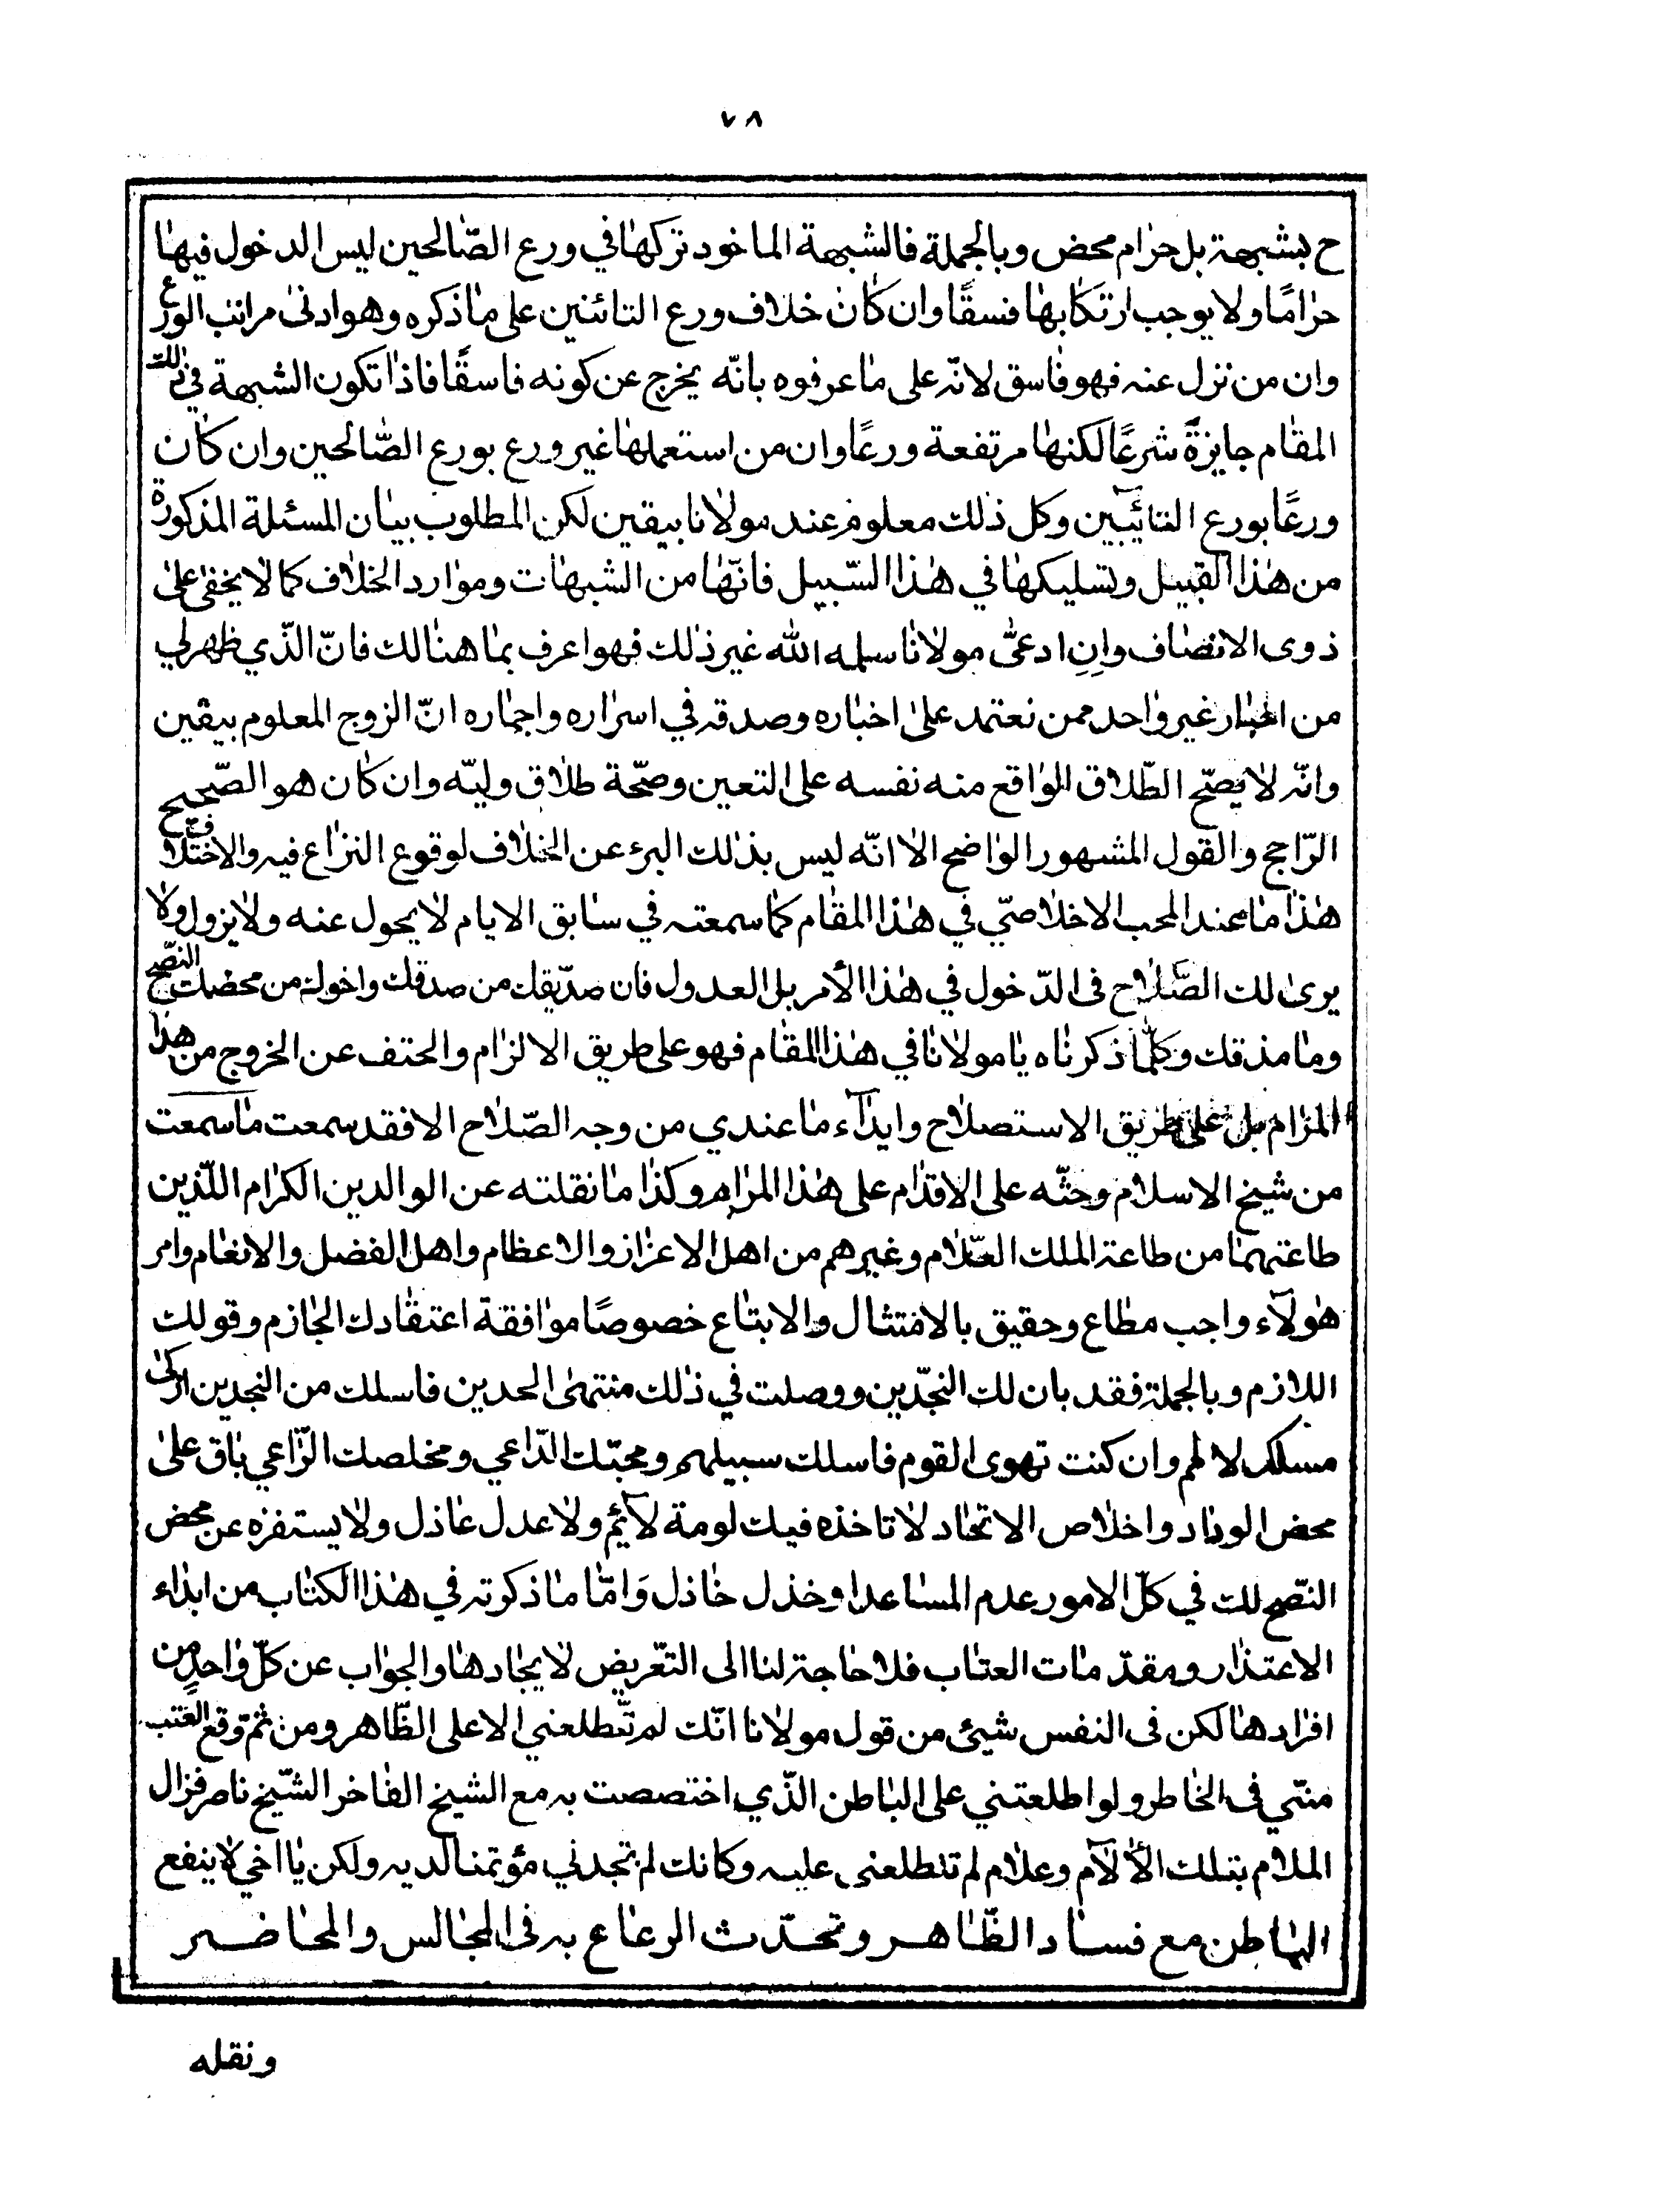 ٧٨
ح بشبهة بل حرام محض وبالجملة فالشبهة الماخود تركها في ورع الصّالحين ليس الدخول فيها
حرامًا ولا يوجب ارتكابها فسقًا وان كان خلاف ورع التائبين على ما ذكره وهو ادنى مراتب الورع
وان من نزل عنه فهو فاسق لانّه على ما عرفوه بانّه يخرج عن كونه فاسقًا فاذا تكون الشبهة في ذلك
المقام جايزةً شرعًا لكنها مرتفعة ورعًا وان من استعملها غير ورع بورع الصّالحين وان كان
ورعًا بورع التائبين وكل ذلك معلوم عند مولانا بيقين لكن المطلوب بيان المسئلة المذكورة
من هذا القبيل وتسليكها في هذا السّبيل فانّها من الشبهات وموارد الخلاف كما لا يخفى على
ذوى الانصاف وان ادعى مولانا سلمه الله غير ذلك فهو اعرف بما هنالك فانّ الذّي ظهر لي
من اخبار غير واحد ممن نعتمد على اخباره وصدقه في اسراره واجهاره انّ الزوج المعلوم بيقين
وانّه لا يصّح الطّلاق الواقع منه نفسه على التعين وصحّة طلاق وليّه وان كان هو الصّحيح
الرّاجح والقول المشهور الواضح الا انّه ليس بذلك البرء عن الخلاف لوقوع النزاع فيه والاختلاف
هذا ما عند المحب الاخلاصّي في هذا المقام كما سمعته في سابق الايام لا يحول عنه ولا يزول ولا
يرى لك الصّلاح فى الدّخول في هذا الأمر بل العدول فان صدّيقك من صدقك واخوك من محضك النصّح
وما مذقك وكلّما ذكرناه يا مولانا في هذا المقام فهو على طريق الالزام والحتف عن الخروج من هذا
المرام بل على طريق الاستصلاح وايدآء ما عندي من وجه الصّلاح الا فقد سمعت ما سمعت
من شيخ الاسلام وحثّه على الاقدام على هذا المرام وكذا ما نقلته عن الوالدين الكرام اللّذين
طاعتهما من طاعة الملك العلّام وغيرهم من اهل الاعزاز والاعظام واهل الفضل والانعام وامر
هولآء واجب مطاع وحقيق بالامتثال والابتاع خصوصًا موافقة اعتقادك الجازم وقولك
اللازم وبالجملة فقد بان لك النجدّين ووصلت في ذلك منتهى الحدين فاسلك من النجدين ازكى
مسلك لا لهم وان كنت تهوى القوم فاسلك سبيلهم ومحبّك الدّاعي ومخلصك الرّاعي باق على
محض الوداد واخلاص الاتحاد لا تاخذه فيك لومة لآئم ولا عدل عاذل ولا يستفزه عن محض
النصّح لك في كلّ الامور عدم المساعد او خذل خاذل وَامّا ما ذكرته في هذا الكتاب من ابداء
الاعتذار ومقدّمات العتاب فلا حاجة لنا الى التعّريض لايجادها والجواب عن كلّ واحدٍ من
افرادها لكن فى النفس شيئ من قول مولانا انّك لم تّطلعني الا على الظّاهر ومن ثمّ وقع العتب
منّي فى الخاطر ولو اطلعتني على الباطن الذّي اختصصت به مع الشيخ الفاخر الشّيخ ناصر فزال
الملام بتلك الألآم وعلام لم تطلعنى عليه وكانك لم تجدني مؤتمنا لديه ولكن يا اخي لا ينفع
الباطن مع فساد الظّاهر وتحدّث الرعاع به فى المجالس والمحاضر
ونقله